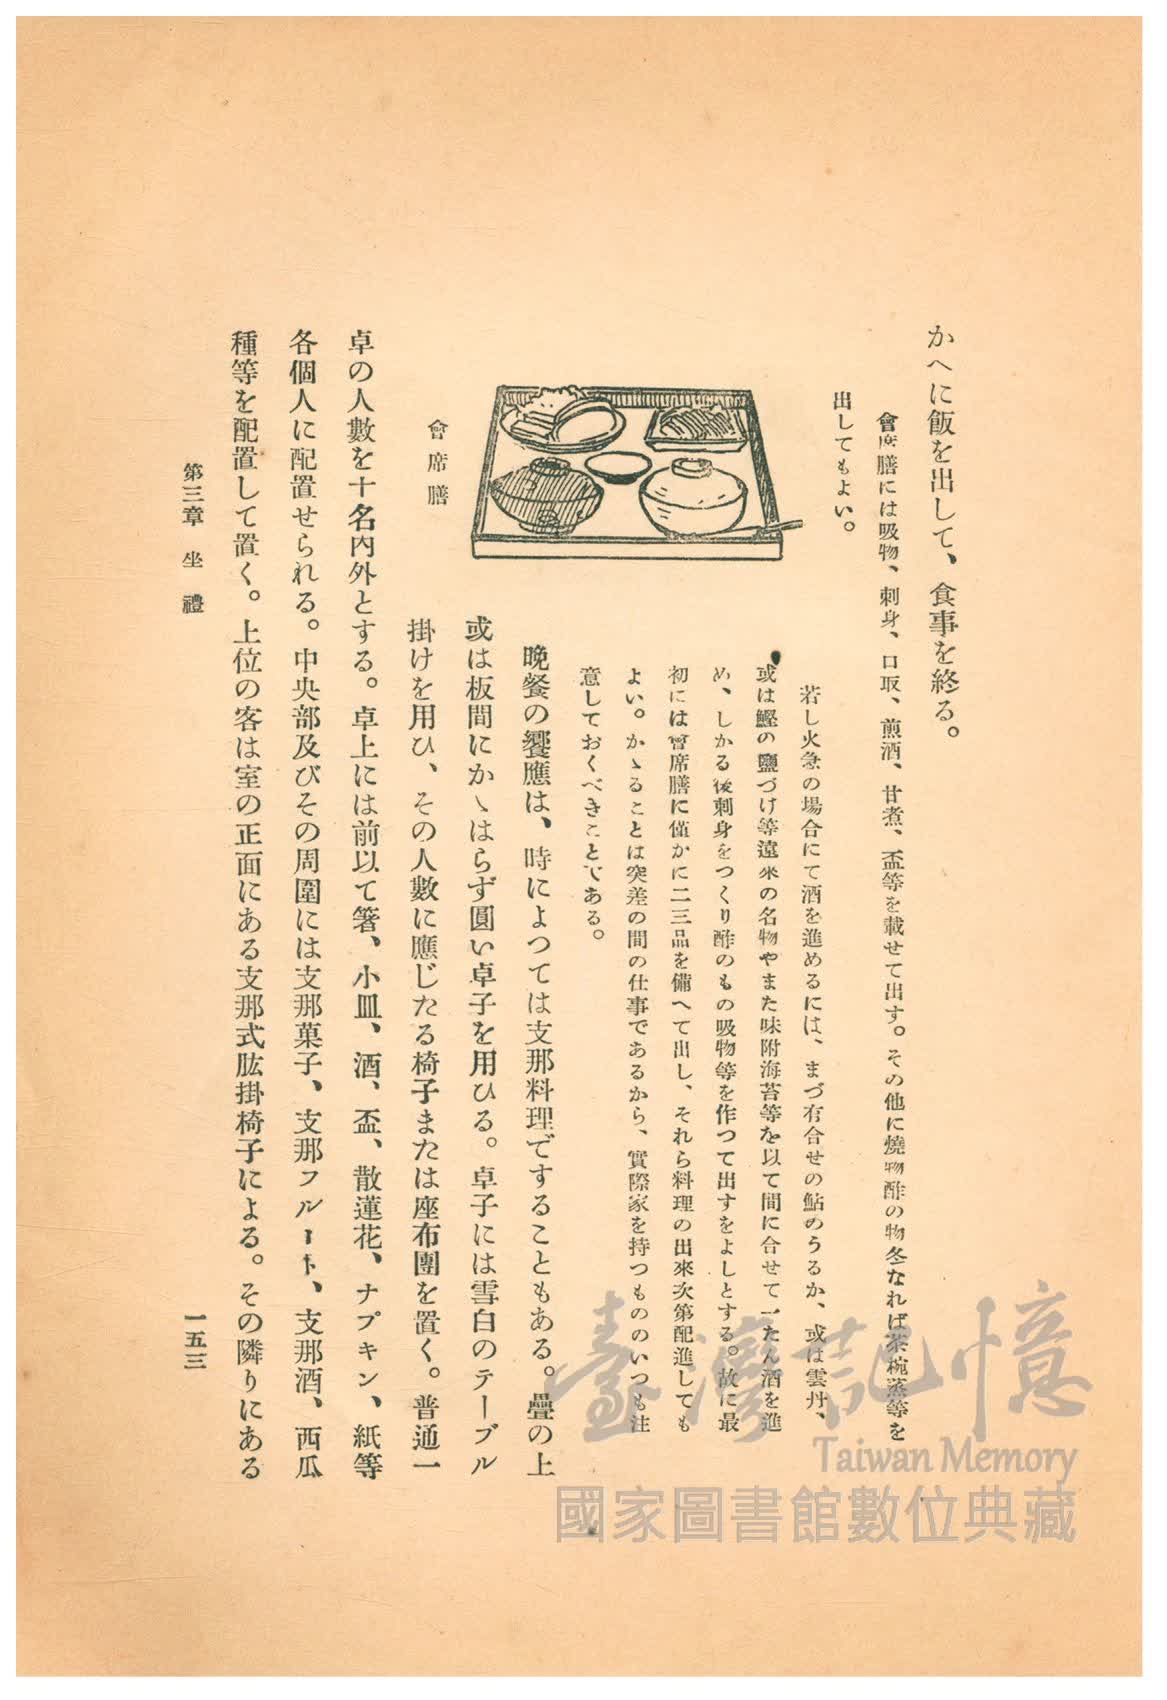 かへに飯を出して、食事を終る。
會席膳には吸物、刺身、口取、煎酒、甘煮、盃等を載せて出す。その他に燒物酢の物冬なれば茶椀蒸等を
出してもよい。
會席膳
若し火急の場合にて酒を進めるには、まづ有合せの鮎のうるか、或は雲丹、
或は鰹の鹽づけ等遠來の名物やまた味附海苔等を以て間に合せて一たん酒を進
め、しかる後刺身をつくり酢のもの吸物等を作つて出すをよしとする。故に最
初には會席膳に僅かに二三品を備へて出し、それら料理の出來次第配進しても
よい。かゝることは突差の間の仕事であるから、實際家を持つもののいつも注
意しておくべきことである。
晩餐の饗應は、時によつては支那料理ですることもある。疊の上
或は板間にかゝはらず圓い卓子を用ひる。卓子には雪白のテーブル
掛けを用ひ、その人數に應じたる椅子または座布團を置く。普通一
卓の人數を十名内外とする。卓上には前以て箸、小皿、酒、盃、散蓮花、ナプキン、紙等
各個人に配置せられる。中央部及びその周圍には支那菓子、支那フルート、支那酒、西瓜
種等を配置して置く。上位の客は室の正面にある支那式肱掛椅子による。その隣りにある
第三章 坐禮
一五三
臺灣記憶
Taiwan Memory
國家圖書館數位典藏